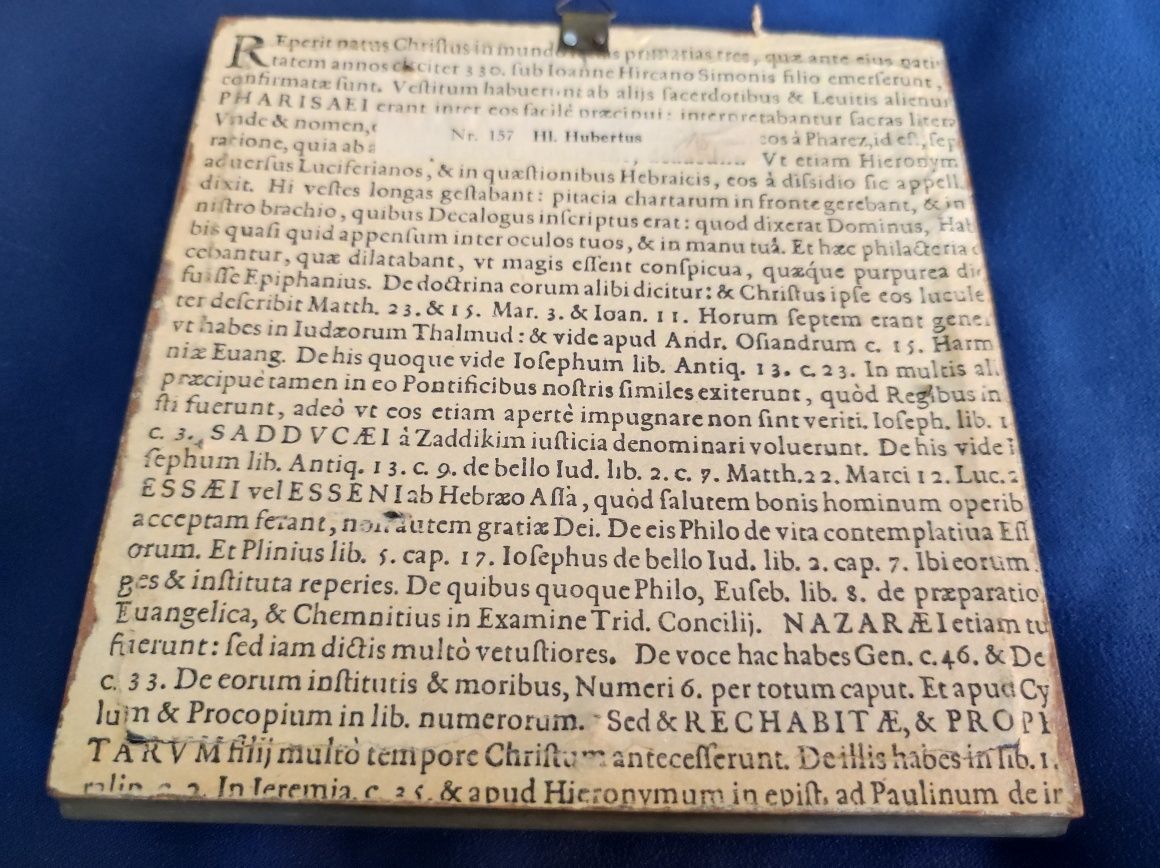 REperit natus Chriſtus in mundo primarias tres, quæ ante eius nati
tatem annos circiter 330. ſub Ioanne Hircano Simonis filio emerſerunt,
confirmatæ ſunt. Veſtitum habuerunt ab alijs ſacerdotibus & Leuitis alienum
PHARISAEI erant inter eos facilè præcipui: interpretabantur ſacras litera
Vnde & nomen, eos à Pharez, id eſt, ſep
Nr. 157 Hl. Hubertus
racione, quia ab a Vt etiam Hieronym
aduerſus Luciferianos, & in quæſtionibus Hebraicis, eos à diſsidio ſic appell
dixit. Hi veſtes longas geſtabant: pitacia chartarum in fronte gerebant, & in
niſtro brachio, quibus Decalogus inſcriptus erat: quod dixerat Dominus, Hab
bis quaſi quid appenſum inter oculos tuos, & in manu tuâ. Et hæc philacteria d
cebantur, quæ dilatabant, vt magis eſſent conſpicua, quæque purpurea dic
fuiſſe Epiphanius. De doctrina eorum alibi dicitur: & Chriſtus ipſe eos lucule
ter deſcribit Matth. 23. & 15. Mar. 3. & Ioan. 11. Horum ſeptem erant gene
vt habes in Iudæorum Thalmud: & vide apud Andr. Oſiandrum c. 15. Harm
niæ Euang. De his quoque vide Ioſephum lib. Antiq. 13. c. 23. In multis ali
præcipuè tamen in eo Pontificibus noſtris ſimiles exiterunt, quòd Regibus in
ſti fuerunt, adeò vt eos etiam apertè impugnare non ſint veriti. Ioſeph. lib. 1
c. 3. SADDVCÆI à Zaddikim iuſticia denominari voluerunt. De his vide I
ſephum lib. Antiq. 13. c. 9. de bello Iud. lib. 2. c. 7. Matth. 22. Marci 12. Luc. 2
ESSÆI vel ESSENI ab Hebræo Aſſà, quòd ſalutem bonis hominum operib
acceptam ferant, non autem gratiæ Dei. De eis Philo de vita contemplatiua Eſſ
orum. Et Plinius lib. 5. cap. 17. Ioſephus de bello Iud. lib. 2. cap. 7. Ibi eorum
ges & inſtituta reperies. De quibus quoque Philo, Euſeb. lib. 8. de præparatio
Euangelica, & Chemnitius in Examine Trid. Concilij. NAZARÆI etiam tu
fuerunt: ſed iam dictis multò vetuſtiores. De voce hac habes Gen. c. 46. & De
c. 33. De eorum inſtitutis & moribus, Numeri 6. per totum caput. Et apud Cy
lum & Procopium in lib. numerorum. Sed & RECHABITÆ, & PROPH
TARVM filij multò tempore Chriſtum anteceſſerunt. De illis habes in lib. 1.
ralip. c. 2. In Ieremia. c. 35. & apud Hieronymum in epiſt. ad Paulinum de in